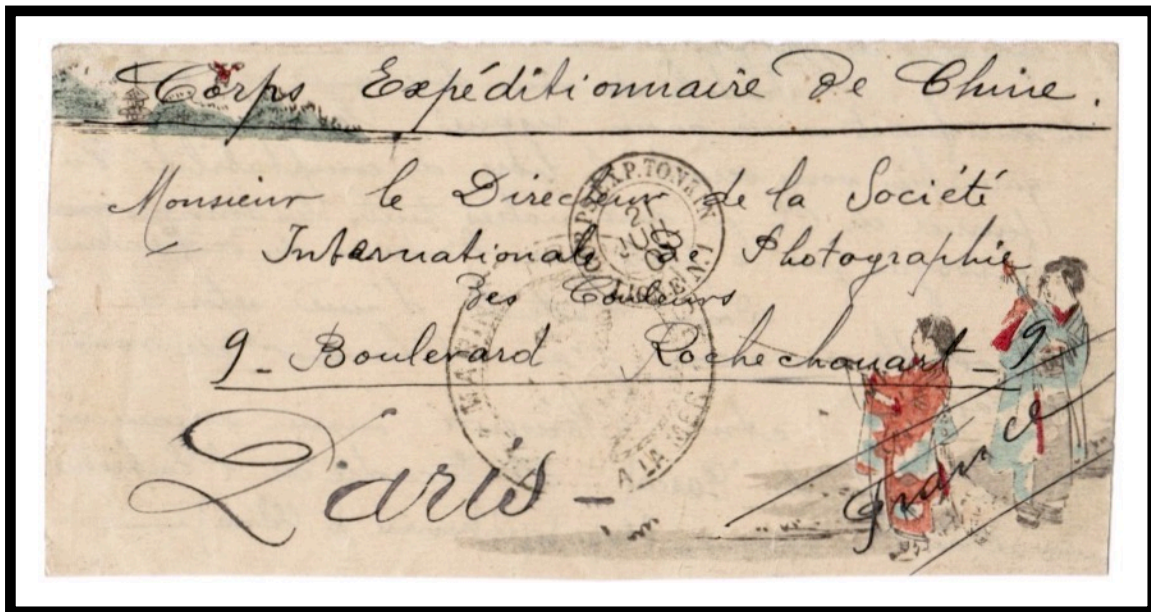 Corps Expéditionnaire De Chine.
Monsieur le Directeur de la Société
Internationale de Photographie
Des Couleurs
9_ Boulevard Rochechouart_9
Paris_
France
CORPS EXP. TONKIN
21
JUIL
LIGNE N.1
MARINE
A LA MER